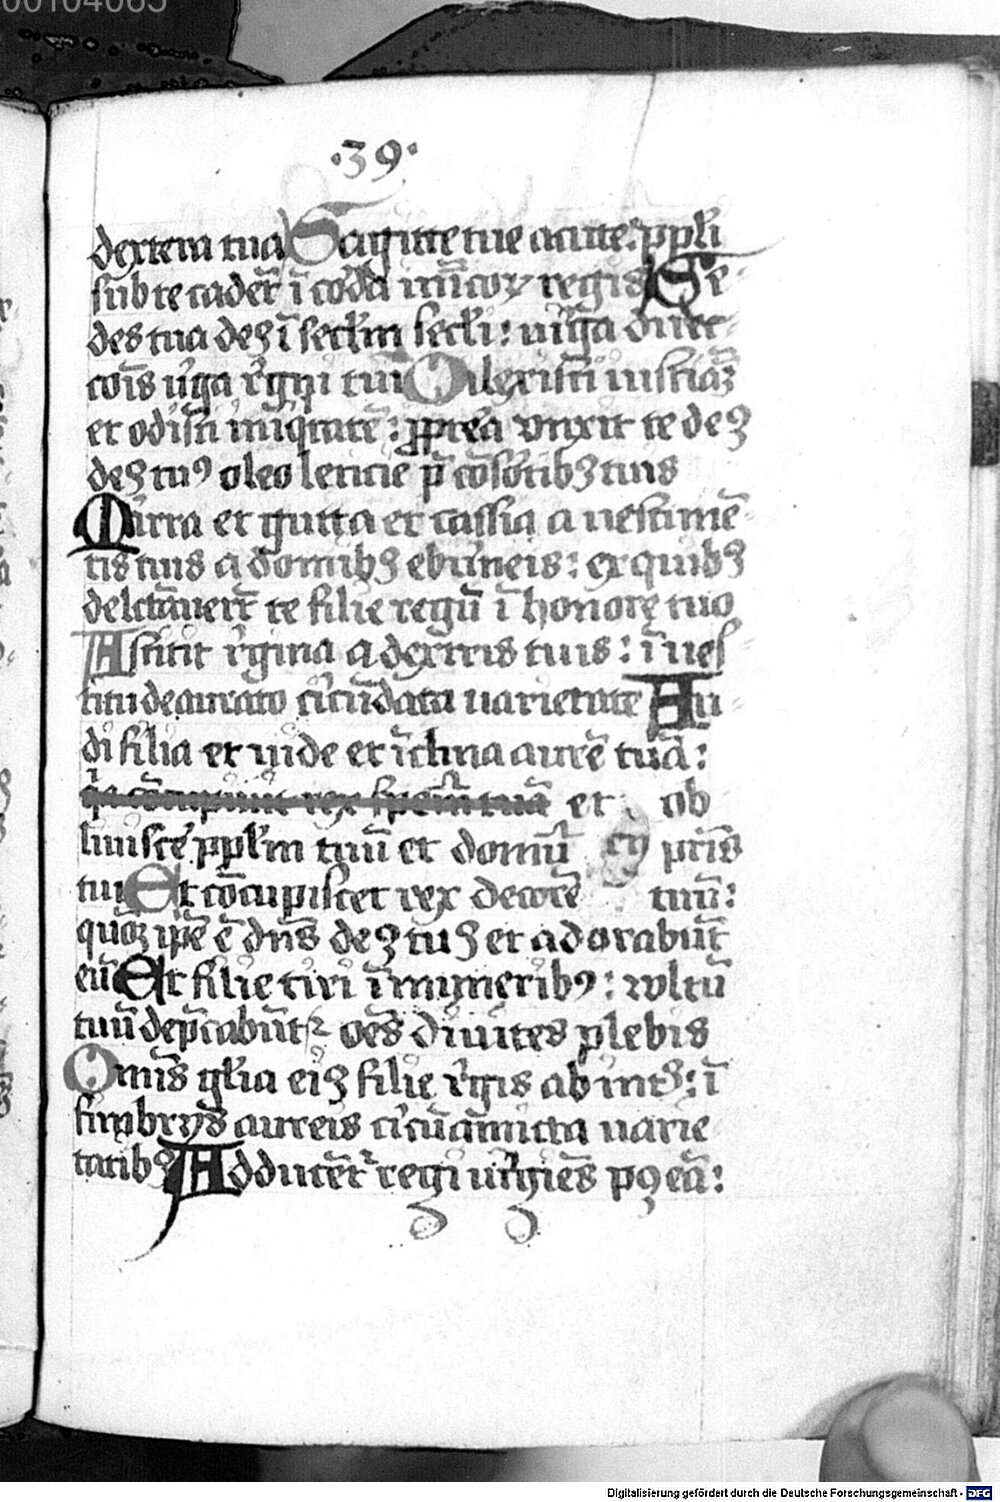 00104065
·39·
dextera tua Sagitte tue acute: ppl̄i
sub te cadēt ī corda īnicoꝝ regis Se-
des tua deꝰ ī secl̄m secl̄i: uirga direc-
cōis uirga regni tui Dilexisti iusticiā
et odisti iniq̄tatē: ꝓpterea vnxit te deꝰ
deꝰ tuꝰ oleo leticie p̄ cōsortibꝫ tuis
Mirra et gutta et cassia a uestimē-
tis tuis a domibꝫ eburneis: ex quibꝫ
delctauerūt te filie regū ī honore tuo
Astitit regina a dextris tuis: ī ues-
titu deaurato circūdata uarietate Au-
di filia et uide et īclina aurē tuā:
et ob
liuiscere ppl̄m tuū et domū pr̄is
tui Et cōcupiscet rex decorē tuū:
quōꝫ ip̄e ē dn̄s deꝰ tuꝰ et adorabūt
eū Et filie tiri ī muneribꝰ: wltū
tuū dep̄cabūtꝛ oēs diuites plebis
Omīs gl̄ia eiꝰ filie regis ab intꝰ: ī
fimbrijs aureis circūamicta uarie
tatibꝫ Adducētꝛ regi uirgīes pꝰ eā:
Digitalisierung gefördert durch die Deutsche Forschungsgemeinschaft - DFG